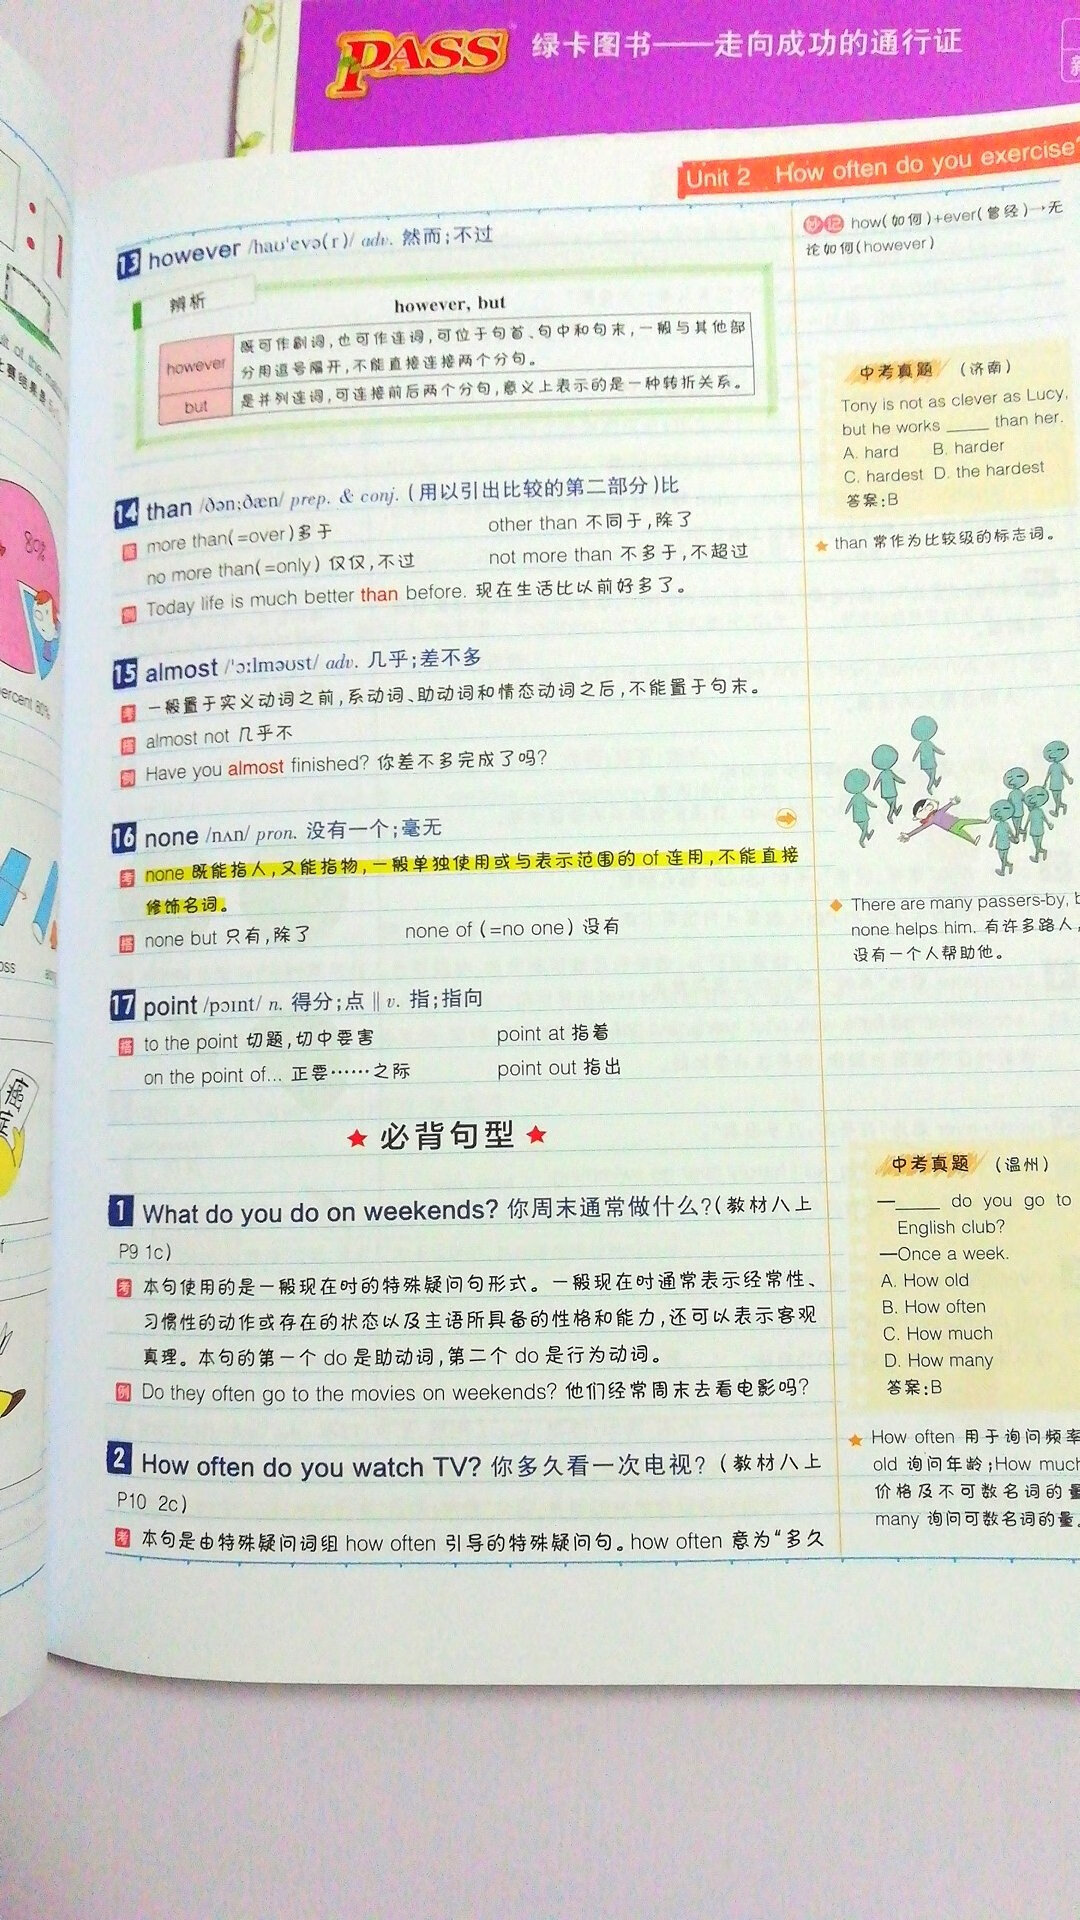 PASS 绿卡图书——走向成功的通行证
Unit 2 How often do you exercise?
13 however /haʊ'evə(r)/ adv. 然而;不过
辨析
however, but
however
既可作副词,也可作连词,可位于句首、句中和句末,一般与其他部
分用逗号隔开,不能直接连接两个分句。
but
是并列连词,可连接前后两个分句,意义上表示的是一种转折关系。
14 than /ðən;ðæn/ prep. & conj. (用以引出比较的第二部分)比
搭 more than(=over)多于 other than 不同于,除了
no more than(=only) 仅仅,不过 not more than 不多于,不超过
例 Today life is much better than before. 现在生活比以前好多了。
15 almost /'ɔːlməʊst/ adv. 几乎;差不多
考 一般置于实义动词之前,系动词、助动词和情态动词之后,不能置于句末。
搭 almost not 几乎不
例 Have you almost finished? 你差不多完成了吗?
16 none /nʌn/ pron. 没有一个;毫无
考 none 既能指人,又能指物,一般单独使用或与表示范围的 of 连用,不能直接
修饰名词。
搭 none but 只有,除了 none of (=no one) 没有
17 point /pɔɪnt/ n. 得分;点 ‖ v. 指;指向
搭 to the point 切题,切中要害 point at 指着
on the point of... 正要……之际 point out 指出
★ 必背句型 ★
1 What do you do on weekends? 你周末通常做什么?(教材八上
P9 1c)
考 本句使用的是一般现在时的特殊疑问句形式。一般现在时通常表示经常性、
习惯性的动作或存在的状态以及主语所具备的性格和能力,还可以表示客观
真理。本句的第一个 do 是助动词,第二个 do 是行为动词。
例 Do they often go to the movies on weekends? 他们经常周末去看电影吗?
2 How often do you watch TV? 你多久看一次电视? (教材八上
P10 2c)
考 本句是由特殊疑问词组 how often 引导的特殊疑问句。how often 意为“多久
妙记 how(如何)+ever(曾经)→无
论如何(however)
中考真题 (济南)
Tony is not as clever as Lucy,
but he works _____ than her.
A. hard B. harder
C. hardest D. the hardest
答案:B
★ than 常作为比较级的标志词。
◆ There are many passers-by,
none helps him. 有许多路人,
没有一个人帮助他。
中考真题 (温州)
—_____ do you go to
English club?
—Once a week.
A. How old
B. How often
C. How much
D. How many
答案:B
★ How often 用于询问频率
old 询问年龄;How much
价格及不可数名词的量
many 询问可数名词的量。
80%
percent 80%